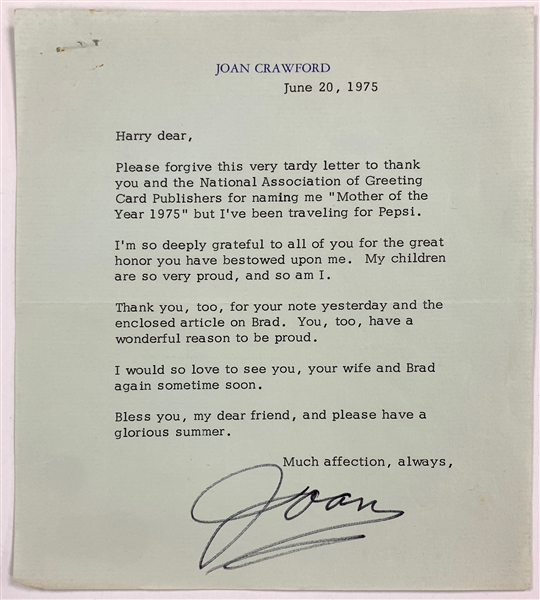 JOAN CRAWFORD
June 20, 1975
Harry dear,
Please forgive this very tardy letter to thank
you and the National Association of Greeting
Card Publishers for naming me "Mother of the
Year 1975" but I've been traveling for Pepsi.
I'm so deeply grateful to all of you for the great
honor you have bestowed upon me.  My children
are so very proud, and so am I.
Thank you, too, for your note yesterday and the
enclosed article on Brad.  You, too, have a
wonderful reason to be proud.
I would so love to see you, your wife and Brad
again sometime soon.
Bless you, my dear friend, and please have a
glorious summer.
Much affection, always,
Joan